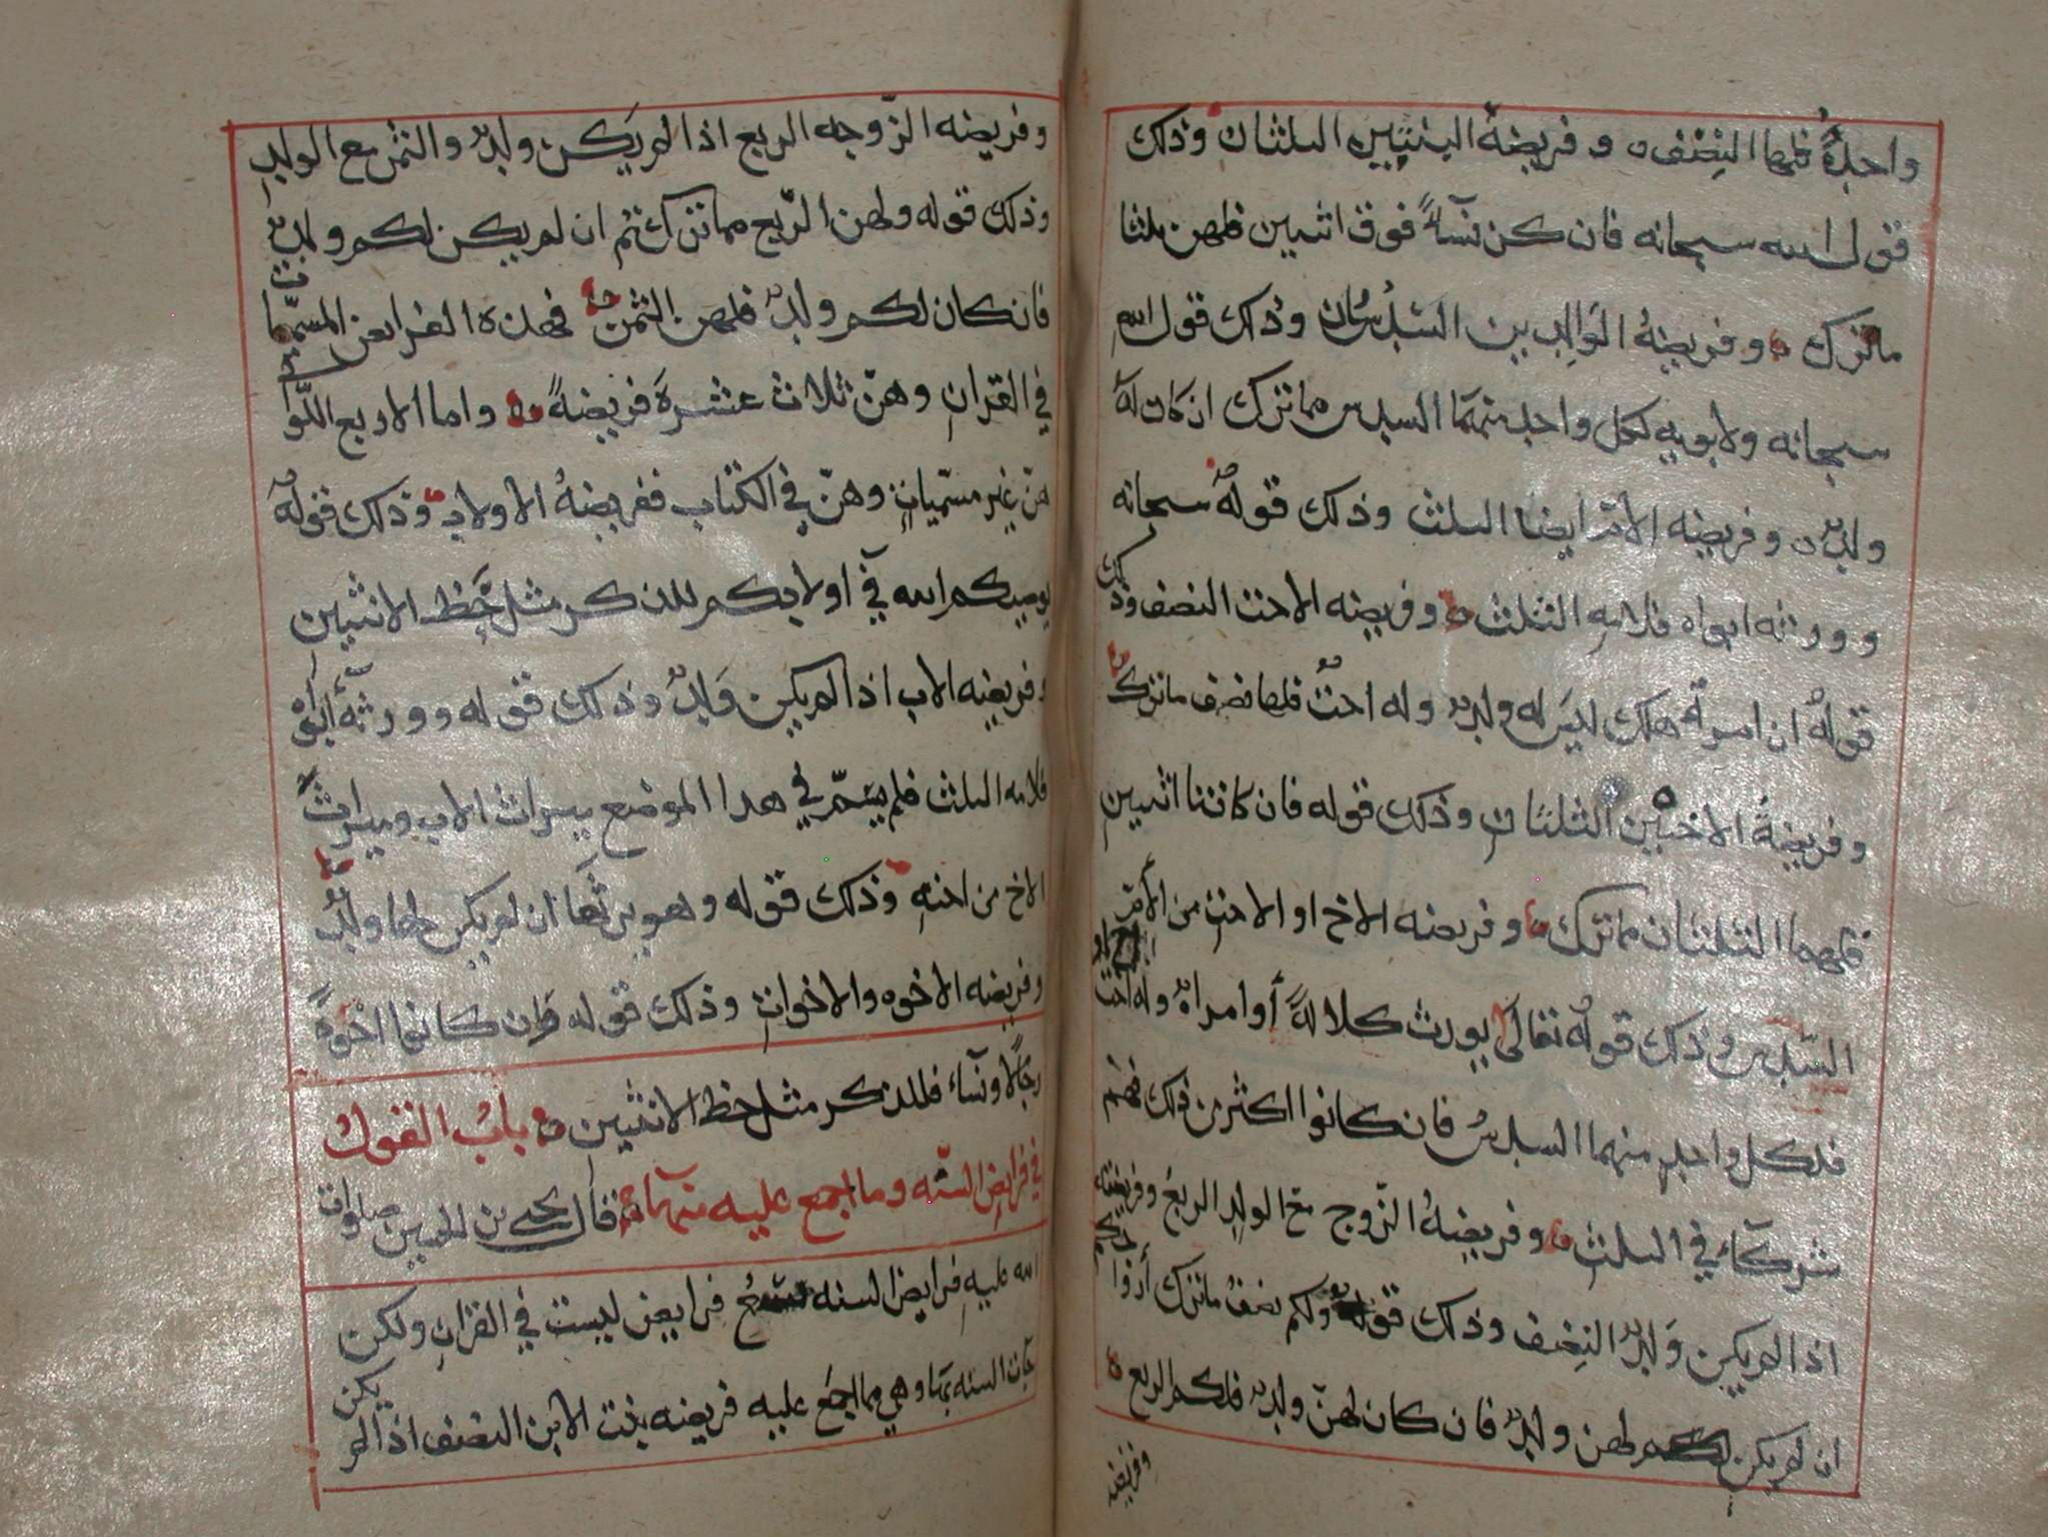 واحدةً فلها النصف و فريضة البنتين الثلثان وذلك
قول الله سبحانه فان كن نسآءً فوق اثنين فلهن ثلثا
ما ترك و فريضةُ الوالدين السدسان وذلك قول الله
سبحانه ولابويه لكل واحد منهما السدس مما ترك ان كان له
ولدٌ و فريضه الام ايضا الثلث وذلك قوله سبحانه
وورثه ابواه فلامه الثلث وفريضه الاخت النصف وذلك
قوله ان امرؤ هلك ليس له ولدٌ وله اختٌ فلها نصف ما ترك
وفريضةُ الاختين الثلثان وذلك قوله فان كانتا اثنين
فلهما الثلثان مما ترك وفريضه الاخ او الاخت من الام
السدس وذلك قوله تعالى يورث كلالةً أو امراةٌ وله اخ او اخت
فلكل واحدٍ منهما السدسُ فان كانوا اكثر من ذلك فهم
شركآء في الثلث وفريضةُ الزوج مع الولد الربعُ وفريضته
اذا لم يكن ولدٌ النصف وذلك قوله ولكم نصفُ ما ترك أزواجكم
ان لم يكن لهن ولدٌ فان كان لهنّ ولدٌ فلكم الربع
وفريضه
وفريضه الزّوجه الربع اذا لم يكن ولدٌ والثمن مع الولد
وذلك قوله ولهن الرّبع مما تركتُم ان لم يكن لكم ولدٌ
فان كان لكم ولدٌ فلهن الثمن فهذه الفرايض المسمّيات
في القران وهنّ ثلاث عشرةَ فريضةً واما الاربع اللّواتي
هنّ غير مسمّياتٍ وهنّ في الكتاب ففريضةُ الاولاد وذلك قوله
يوصيكم الله في اولادكم للذكر مثل حَظ الانثيين
وفريضه الاب اذا لم يكن وَلدٌ وذلك قوله وورثهُ أبواه
فلامه الثلث فلم يسمّ في هذا الموضع ميراث الاب وميراث
الاخ من اخته وذلك قوله وهو يرثُها ان لم يكن لها ولدٌ
وفريضه الاخوه والاخوات وذلك قوله وَان كانوا اخوةً
رجالًا ونسآء فللذكر مثل حظ الانثيين بابُ القول
في فرايض السنّه وما اجمع عليه منها قال يحيى بن الحسين صلوات
الله عليه فرايض السنه تسعُ فرايض ليست في القران ولكن
جآت السنه بها وهي مما اجمع عليه فريضه بنت الابن النصف اذا لم يكن